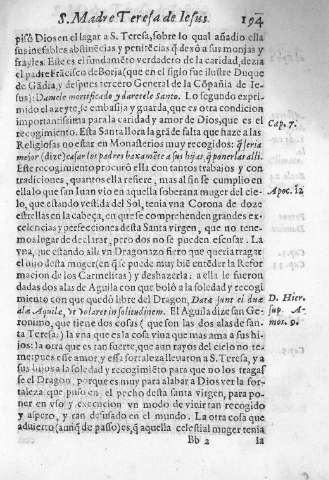 S. Madre Teresa de Iesus. 194
pisò Dios en el lagar a S. Teresa, sobre lo qual añadio ella
sus inefables abstinēcias y penitēcias q̄ dexò a sus monjas y
frayles. Este es el fundamēto verdadero de la caridad, dezia
el padre Frācisco de Borja (que en el siglo fue ilustre Duque
de Gādia, y despues tercero General de la Cōpañia de Ie-
sus:) Damele mortificado y darètele Santo. Lo segundo expri-
mido el azeyte, se embasija y guarda, que es otra condicion
importantissima para la caridad y amor de Dios, que es el
recogimiento. Esta Santa llora la grāde falta que haze a las
Religiosas no estar en Monasterios muy recogidos: q̄ seria
Cap. 7.
mejor (dize) casar los padres baxamēte a sus hijas, q̄ ponerlas alli.
Este recogimiento procurò ella con tantos trabajos y con-
tradiciones, quantos ella refiere, mas al fin se cumplio en
ella lo que san Iuan vio en aquella soberana muger del cie-
Apoc. 12
lo, que estando vestida del Sol, tenia vna Corona de doze
estrellas en la cabeça, en que se comprehenden grandes ex-
celencias y perfecciones desta Santa virgen, que no tene-
mos lugar de declarar, pero dos no se pueden escusar. La
vna, que estando alli vn Dragonazo fiero que queria tragar
el niño desta muger (en q̄ se puede muy biē entēder la Refor
macion de los Carmelitas) y deshazerla: a ella le fueron
dadas dos alas de Aguila con que bolò a la soledad y recogi
miento con que quedò libre del Dragon, Datæ sunt ei duæ
D. Hier.
alæ Aquilæ, vt volaret in solitudinem. El Aguila dize san Ge-
sup. A-
ronimo, que tiene dos cosas (que son las dos alas de san-
mos. 9.
ta Teresa:) la vna que es la cosa viua que mas ama a sus hi-
jos: la otra que es tan fuerte, que aun rayos del cielo no te-
me: pues esse amor, y essa fortaleza lleuaron a S. Teresa, y a
sus hijos a la soledad y recogimiēto para que no los tragas-
se el Dragon, porque es muy para alabar a Dios ver la for-
taleza que puso en el pecho desta santa virgen, para po-
ner en vso y execucion vn modo de viuir tan recogido
y aspero, y tan desusado en el mundo. La otra cosa que
aduierto (aunq̄ de passo) es, q̄ aquella celestial muger tenia
Bb 2 la